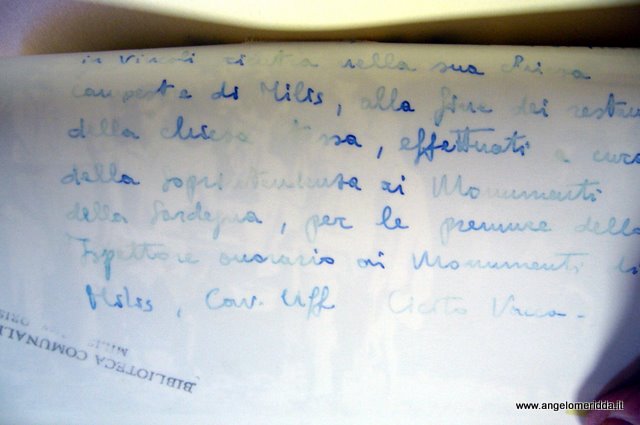 in vincoli sita nella sua chiesa
campestre di Milis, alla fine dei restau
della chiesa stessa, effettuati a cura
della Soprintendenza ai Monumenti
della Sardegna, per le premure dello
Ispettore onorario ai Monumenti di
Milis, Cav. Uff
BIBLIOTECA COMUNALE
MILIS
www.angelomeridda.it